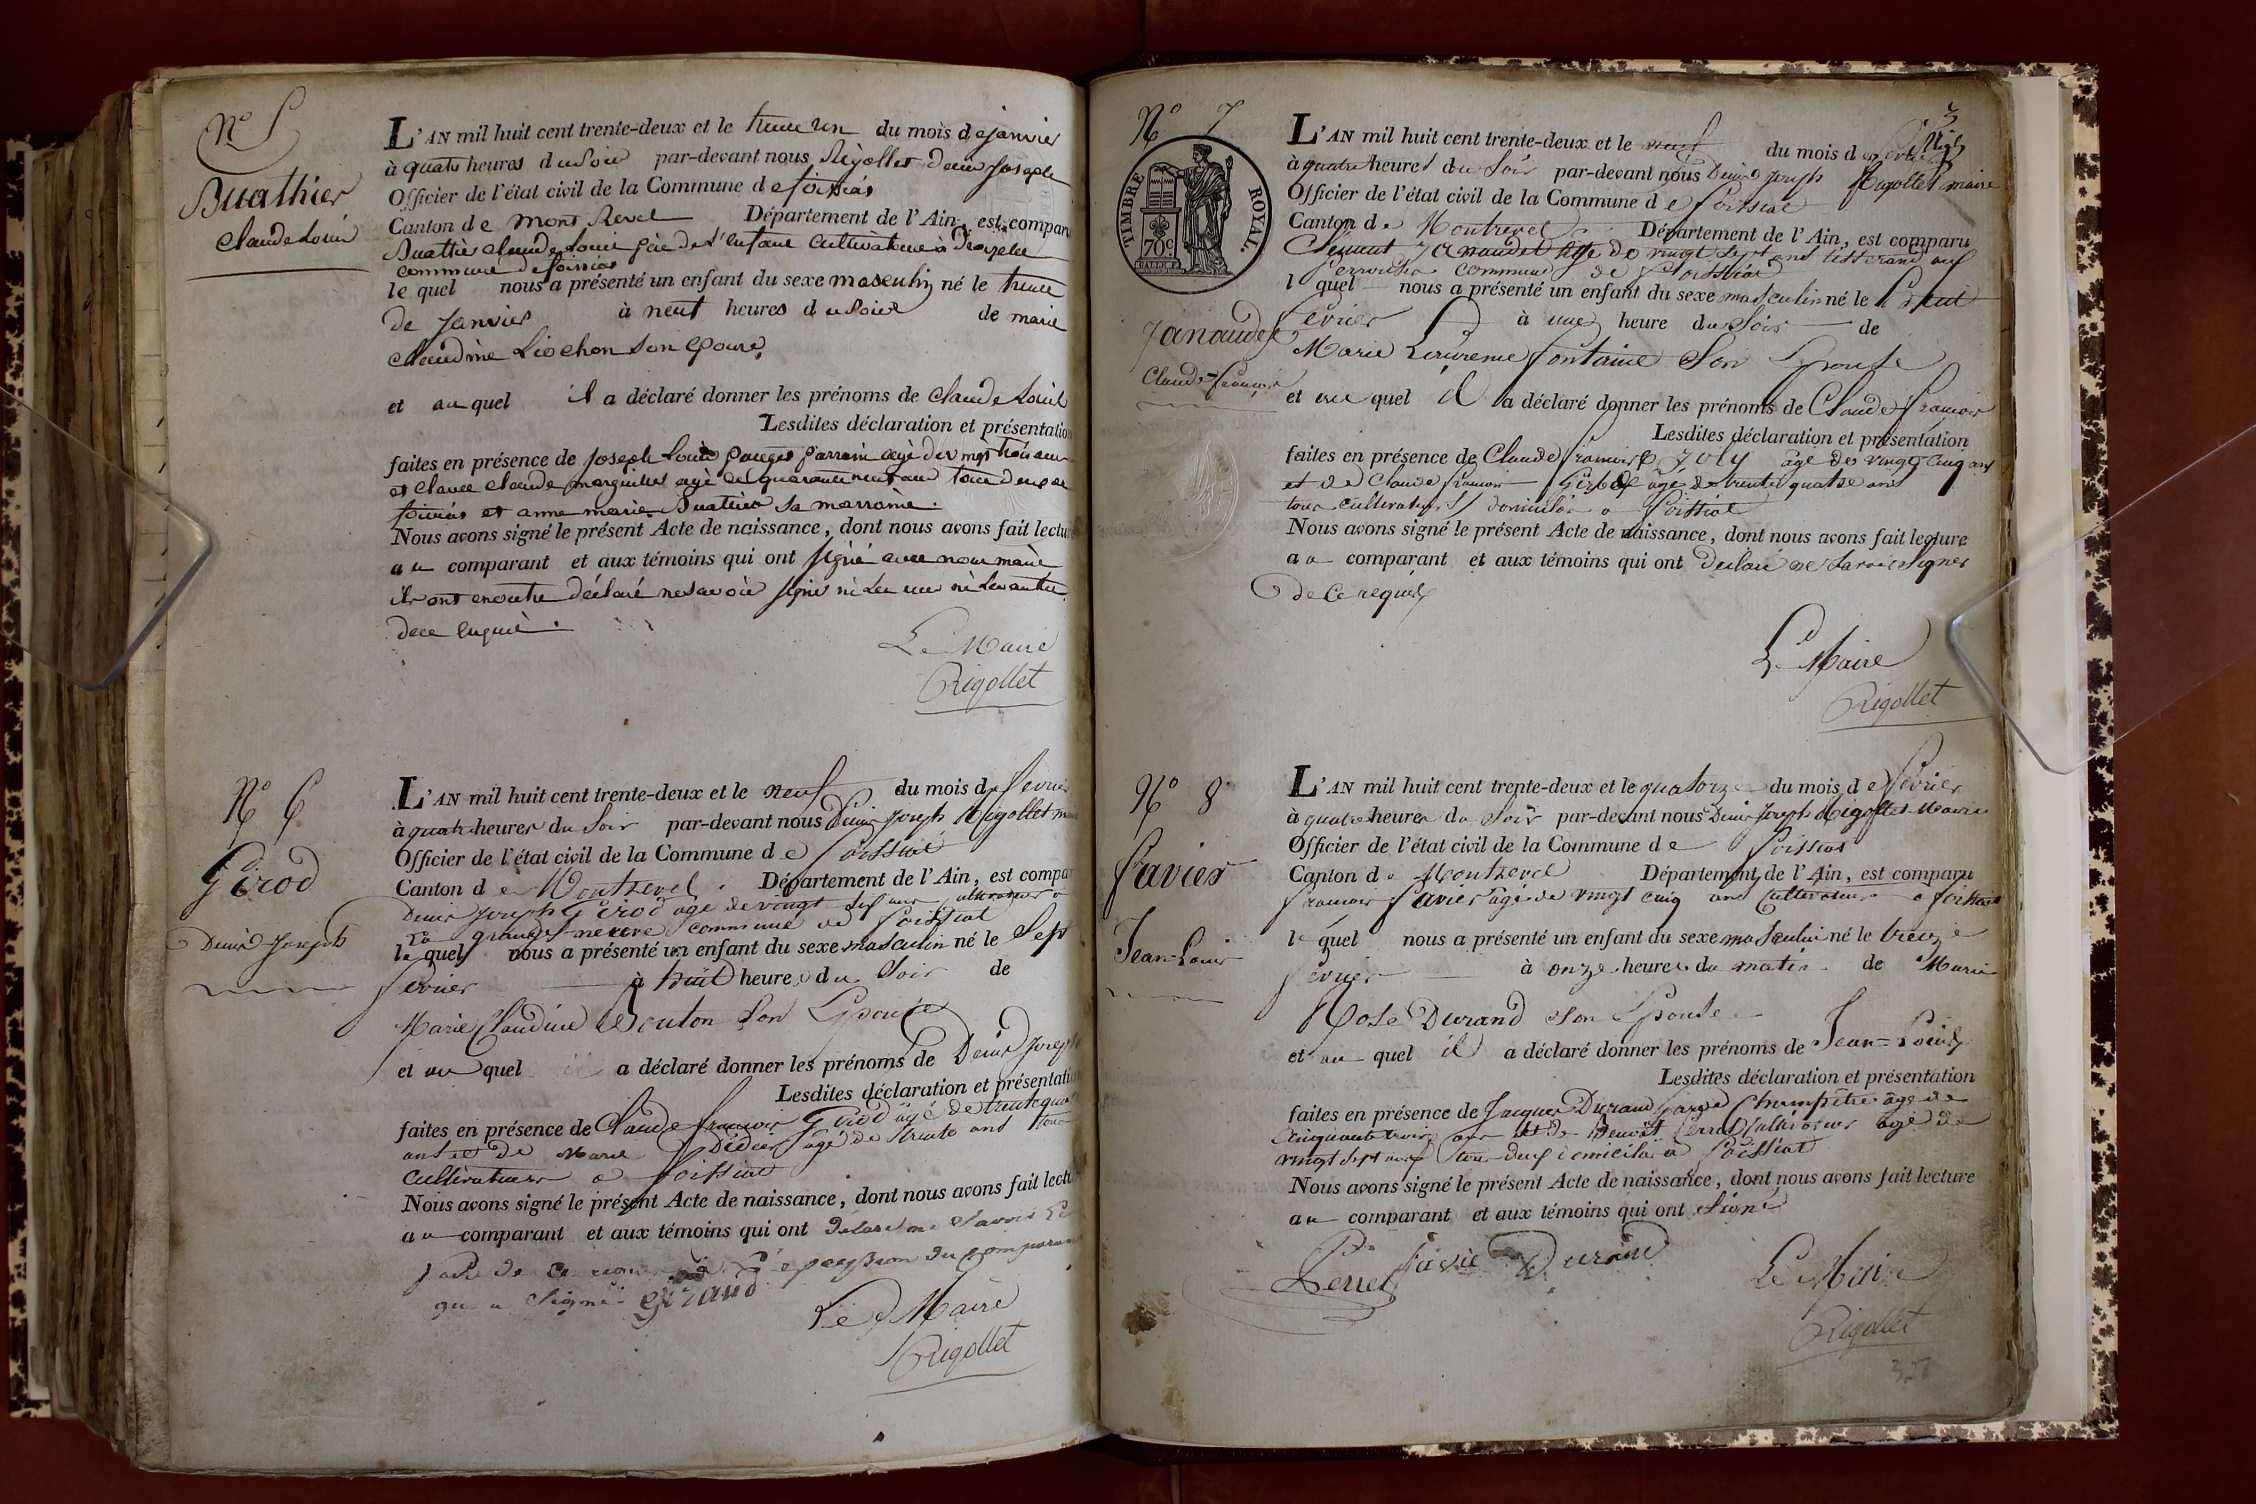 N° 5
Buathier
Claude Louis
L'AN mil huit cent trente-deux et le trente un du mois de janvier
à quatre heures du soir par-devant nous Rigollet denis joseph
Officier de l'état civil de la Commune de foissiat
Canton de Mont Revel Département de l'Ain, est compar
Buathier claude Louis père de l'enfant cultivateur à
commune de foissiat
le quel nous a présenté un enfant du sexe masculin né le trente
de janvier à neuf heures du soir de marie
claudine Liochon son epouse
et au quel il a déclaré donner les prénoms de claude Louis
Lesdites déclaration et présentation
faites en présence de joseph Louis parrain agé de vingt trois ans
et claude marguiller agé de quarante neuf ans tous deux de
foissiat et anne marie Buathier sa marraine.
Nous avons signé le présent Acte de naissance, dont nous avons fait lecture
au comparant et aux témoins qui ont signé avec nous maire
ils ont ensuite déclaré ne savoir signer ni les uns ni les autres
de ce enquis.
Le Maire
Rigollet
N° 6
Gérod
Denis Joseph
L'AN mil huit cent trente-deux et le neuf du mois de fevrier
à quatre heures du Soir par-devant nous Denis Joseph Rigollet
Officier de l'état civil de la Commune de foissiat
Canton de Montrevel. Département de l'Ain, est compa
Denis Joseph Gérod age de vingt sept ans cultivateur a
la grange neuve commune de Foissiat
le quel nous a présenté un enfant du sexe masculin né le Sept
fevrier à huit heures du Soir de
Marie Claudine Bouton Son Epouse
et au quel il a déclaré donner les prénoms de Denis Joseph
Lesdites déclaration et présentation
faites en présence de Claude françois Gérod âgé de trente quatre
ans et de Marie Didier agé de trente ans tous
cultivateurs a foissiat
Nous avons signé le présent Acte de naissance, dont nous avons fait lectu
au comparant et aux témoins qui ont déclaré ne savoir Le
faire de ce à l'exception du comparant
qui a signé Giraud
Le Maire
Rigollet
N° 7
TIMBRE ROYAL.
70c.
Janaudet
Claude-françois
3
L'AN mil huit cent trente-deux et le neuf du mois de fevrier
à quatre heures du Soir par-devant nous Denis Joseph Rigollet maire
Officier de l'état civil de la Commune de foissiat
Canton de Montrevel. Département de l'Ain, est comparu
Clément Janaudet âge de vingt Sept ans tisserand aux
commune de foissiat
le quel nous a présenté un enfant du sexe masculin né le neuf
fevrier à une heure du Soir de
Marie Laurence fontaine Son Epouse
et au quel il a déclaré donner les prénoms de Claude françois
Lesdites déclaration et présentation
faites en présence de Claude françois Joly âge de vingt cinq ans
et de Claude françois Gérod âgé de trente quatre ans
tous cultivateurs domiciliés a foissiat
Nous avons signé le présent Acte de naissance, dont nous avons fait lecture
au comparant et aux témoins qui ont déclaré ne savoir Signer
de ce requis
Le Maire
Rigollet
N° 8
favier
Jean-Louis
L'AN mil huit cent trente-deux et le quatorze du mois de fevrier
à quatre heures du Soir par-devant nous Denis Joseph Rigollet Maire
Officier de l'état civil de la Commune de foissiat
Canton de Montrevel Département de l'Ain, est comparu
françois favier âgé de vingt cinq ans Cultivateur a foissiat
le quel nous a présenté un enfant du sexe masculin né le treize
fevrier à onze heures du matin de Marie
Rose Durand Son Epouse
et au quel il a déclaré donner les prénoms de Jean-Louis
Lesdites déclaration et présentation
faites en présence de Jacques Durand garde Champêtre âgé de
Cinquante trois ans et de Benoit Perret Cultivateur agé de
vingt Sept ans tous deux domiciliés a foissiat
Nous avons signé le présent Acte de naissance, dont nous avons fait lecture
au comparant et aux témoins qui ont Signé
Perret favie Durand
Le Maire
Rigollet